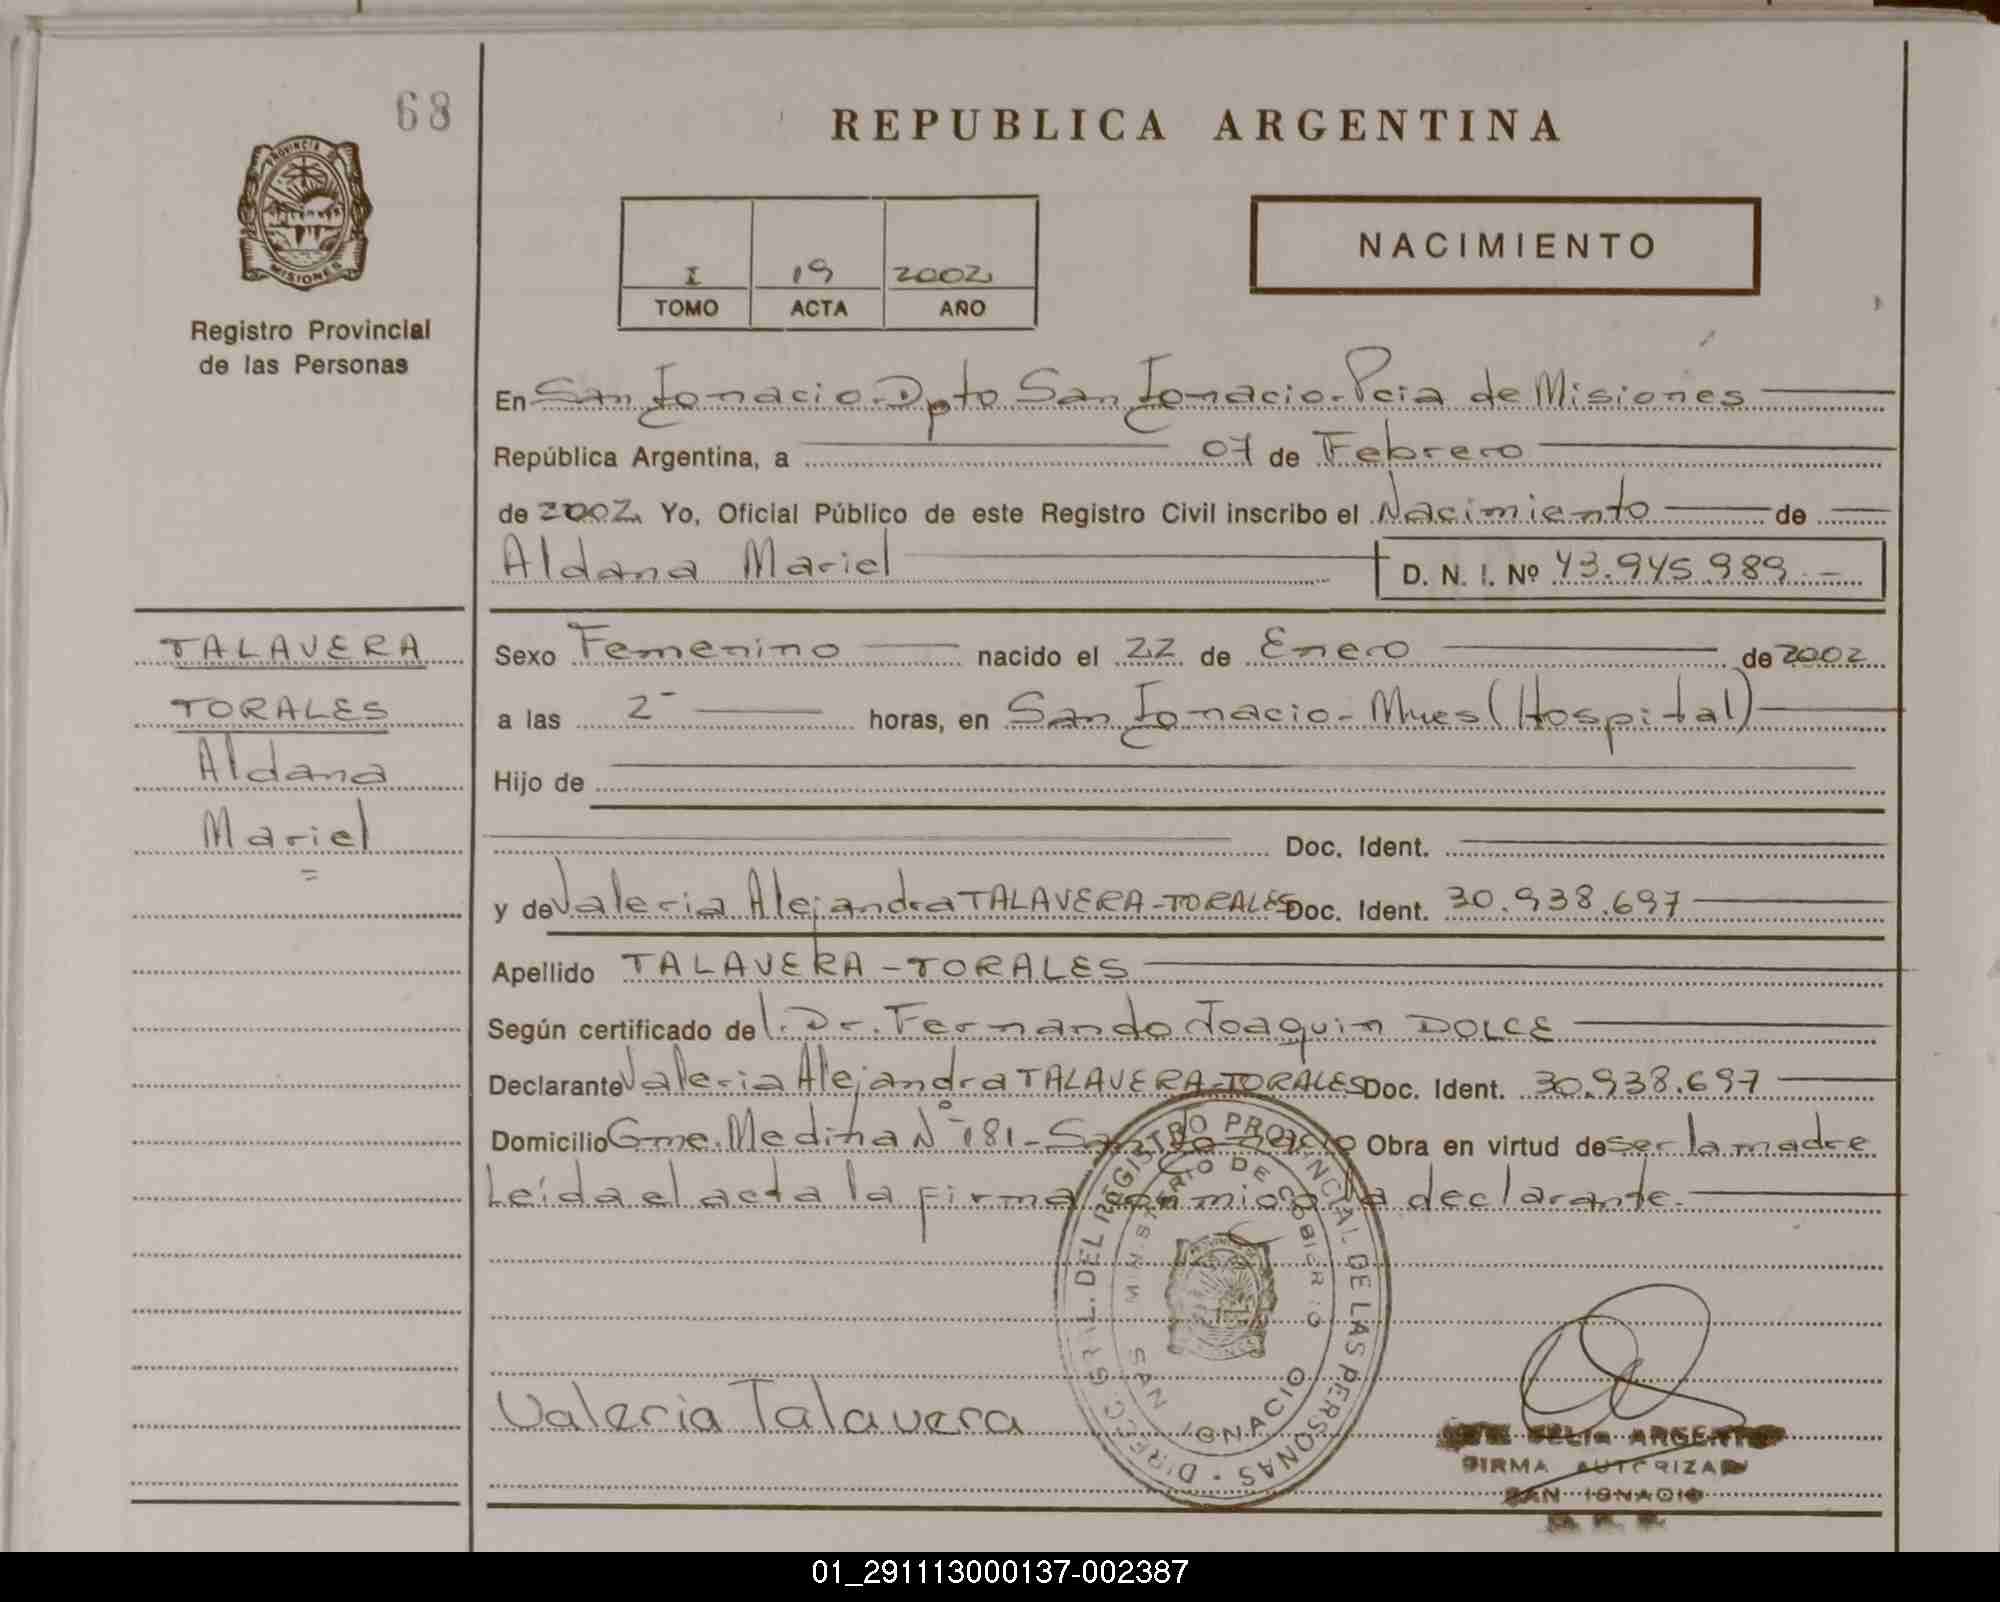 68
REPUBLICA ARGENTINA
PROVINCIA DE
MISIONES
Registro Provincial
de las Personas
I 19 2002
TOMO ACTA AÑO
NACIMIENTO
En San Ignacio - Dpto San Ignacio - Pcia de Misiones
República Argentina, a 07 de Febrero
de 2002 Yo, Oficial Público de este Registro Civil inscribo el Nacimiento de
Aldana Mariel D. N. I. Nº 43.945.989 -
TALAVERA
TORALES
Aldana
Mariel
=
Sexo Femenino nacido el 22 de Enero de 2002
a las 2- horas, en San Ignacio - Mnes (Hospital)
Hijo de
Doc. Ident.
y de Valeria Alejandra TALAVERA-TORALES Doc. Ident. 30.938.697
Apellido TALAVERA - TORALES
Según certificado del. Dr. Fernando Joaquin DOLCE
Declarante Valeria Alejandra TALAVERA-TORALES Doc. Ident. 30.938.697
Domicilio Gme. Medina Nº 181 - San Ignacio Obra en virtud de ser la madre
Leída el acta la firma conmigo la declarante.
DIRECC. GRAL. DEL REGISTRO PROVINCIAL DE LAS PERSONAS
MINISTERIO DE GOBIERNO
SAN IGNACIO
Valeria Talavera
CELIA ARGENTO
FIRMA AUTORIZADA
SAN IGNACIO
01_291113000137-002387